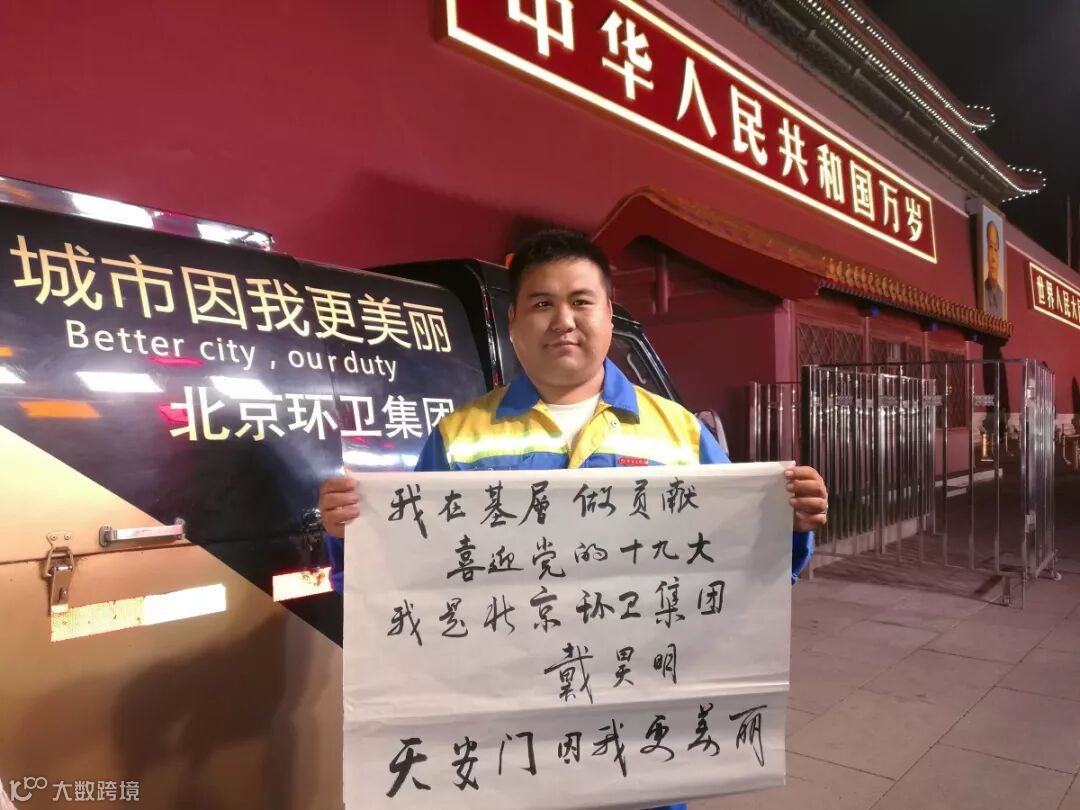 中华人民共和国万岁
世界人民大
城市因我更美丽
Better city , our duty
北京环卫集团
我在基層做员献
喜迎党的十九大
我是北京环卫集团
戴昊明
天安门因我更美丽
大数跨境